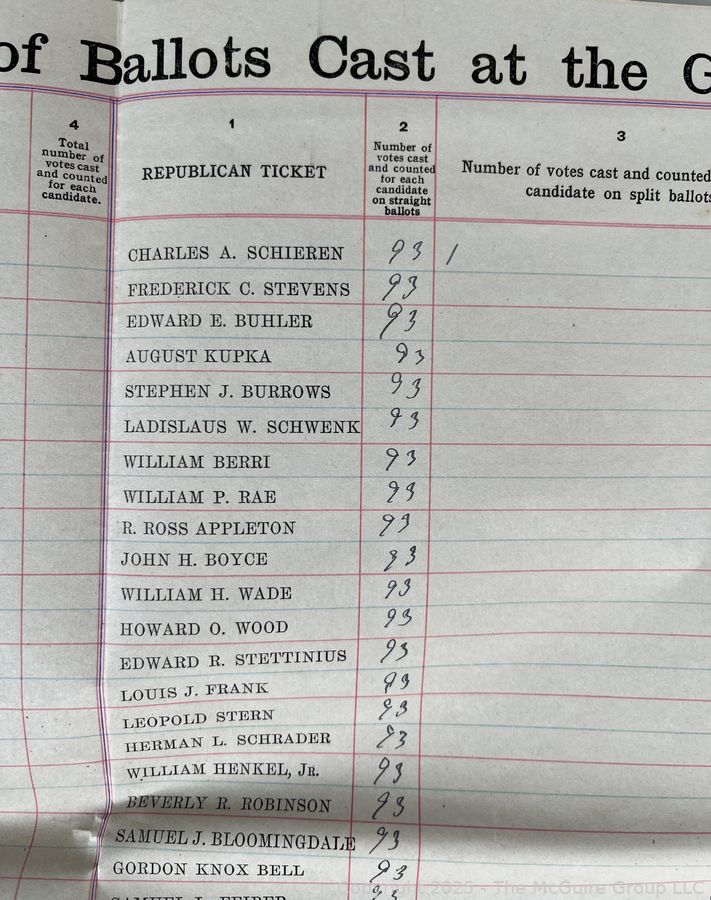 of Ballots Cast at the G
4
Total
number of
votes cast
and counted
for each
candidate.
1
REPUBLICAN TICKET
2
Number of
votes cast
and counted
for each
candidate
on straight
ballots
3
Number of votes cast and counted
candidate on split ballots
CHARLES A. SCHIEREN 93 1
FREDERICK C. STEVENS 93
EDWARD E. BUHLER 93
AUGUST KUPKA 93
STEPHEN J. BURROWS 93
LADISLAUS W. SCHWENK 93
WILLIAM BERRI 93
WILLIAM P. RAE 93
R. ROSS APPLETON 93
JOHN H. BOYCE 93
WILLIAM H. WADE 93
HOWARD O. WOOD 93
EDWARD R. STETTINIUS 93
LOUIS J. FRANK 93
LEOPOLD STERN 93
HERMAN L. SCHRADER 93
WILLIAM HENKEL, JR. 93
BEVERLY R. ROBINSON 93
SAMUEL J. BLOOMINGDALE 93
GORDON KNOX BELL 93
SAMUEL L. 93
Copyright 2025 - The McGuire Group LLC